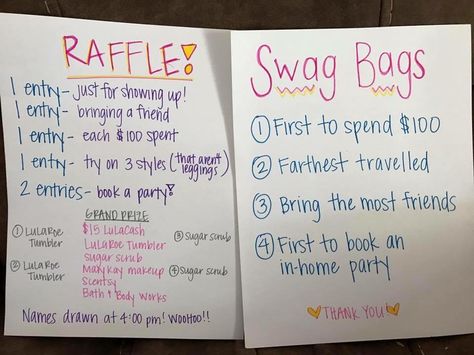 RAFFLE!
1 entry- just for showing up!
1 entry- bringing a friend
1 entry- each $100 spent
1 entry- try on 3 styles (that aren't leggings)
2 entries- book a party!
GRAND PRIZE
① LuLaRoe Tumbler
② LuLaRoe Tumbler
$15 LuLaCash
LuLaRoe Tumbler
Sugar scrub
Mary Kay makeup
Scentsy
Bath & Body Works
③ Sugar scrub
④ Sugar scrub
Names drawn at 4:00 pm! Woohoo!!
Swag Bags
① First to spend $100
② Farthest travelled
③ Bring the most friends
④ First to book an
in-home party
THANK YOU!